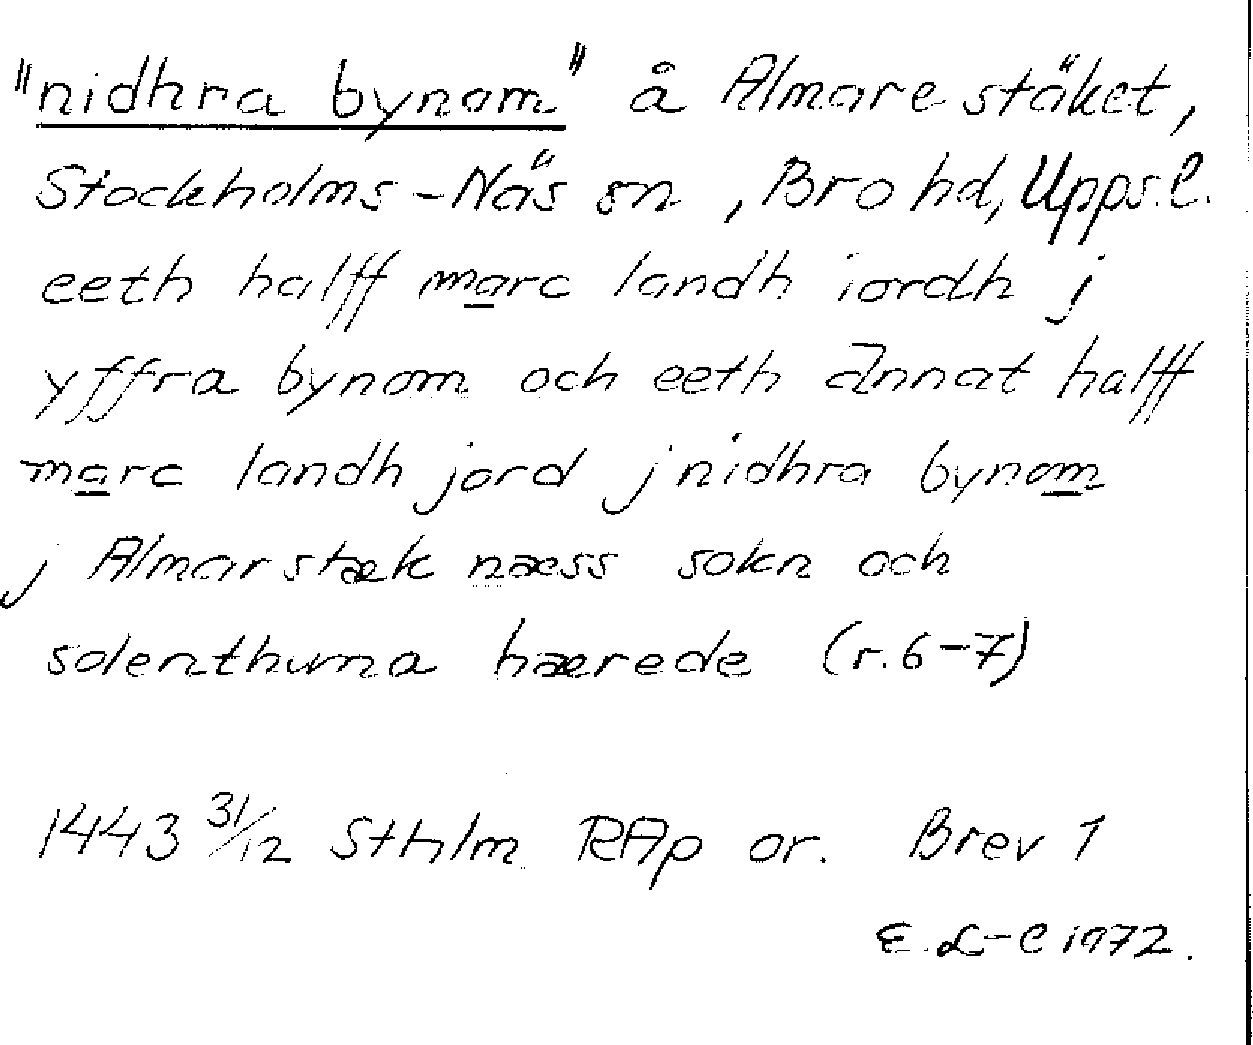 "nidhra bynom" å Almare stäket,
Stockholms-Näs sn, Bro hd, Upps.l.
eeth halff marc landh iordh j
yffra bynom och eeth annat halff
marc landh jord j nidhra bynom
j Almarstæk næss sokn och
solenthuna hærede (r. 6-7)
1443 31/12 Sthlm RAp or. Brev 1
E. L-C 1972.